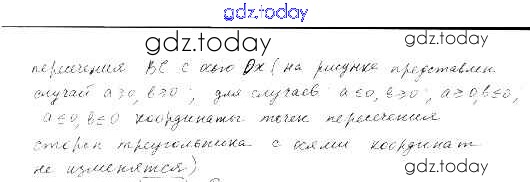 gdz.today
gdz.today
gdz.today
пересечения ВС с осью Ox (на рисунке представлен
случай a≥0, b≥0 ; для случаев a≤0, b≥0 ; a≥0, b≤0 ;
a≤0, b≤0 координаты точек пересечения
сторон треугольника с осями координат
не изменятся)
gdz.today
gdz.today